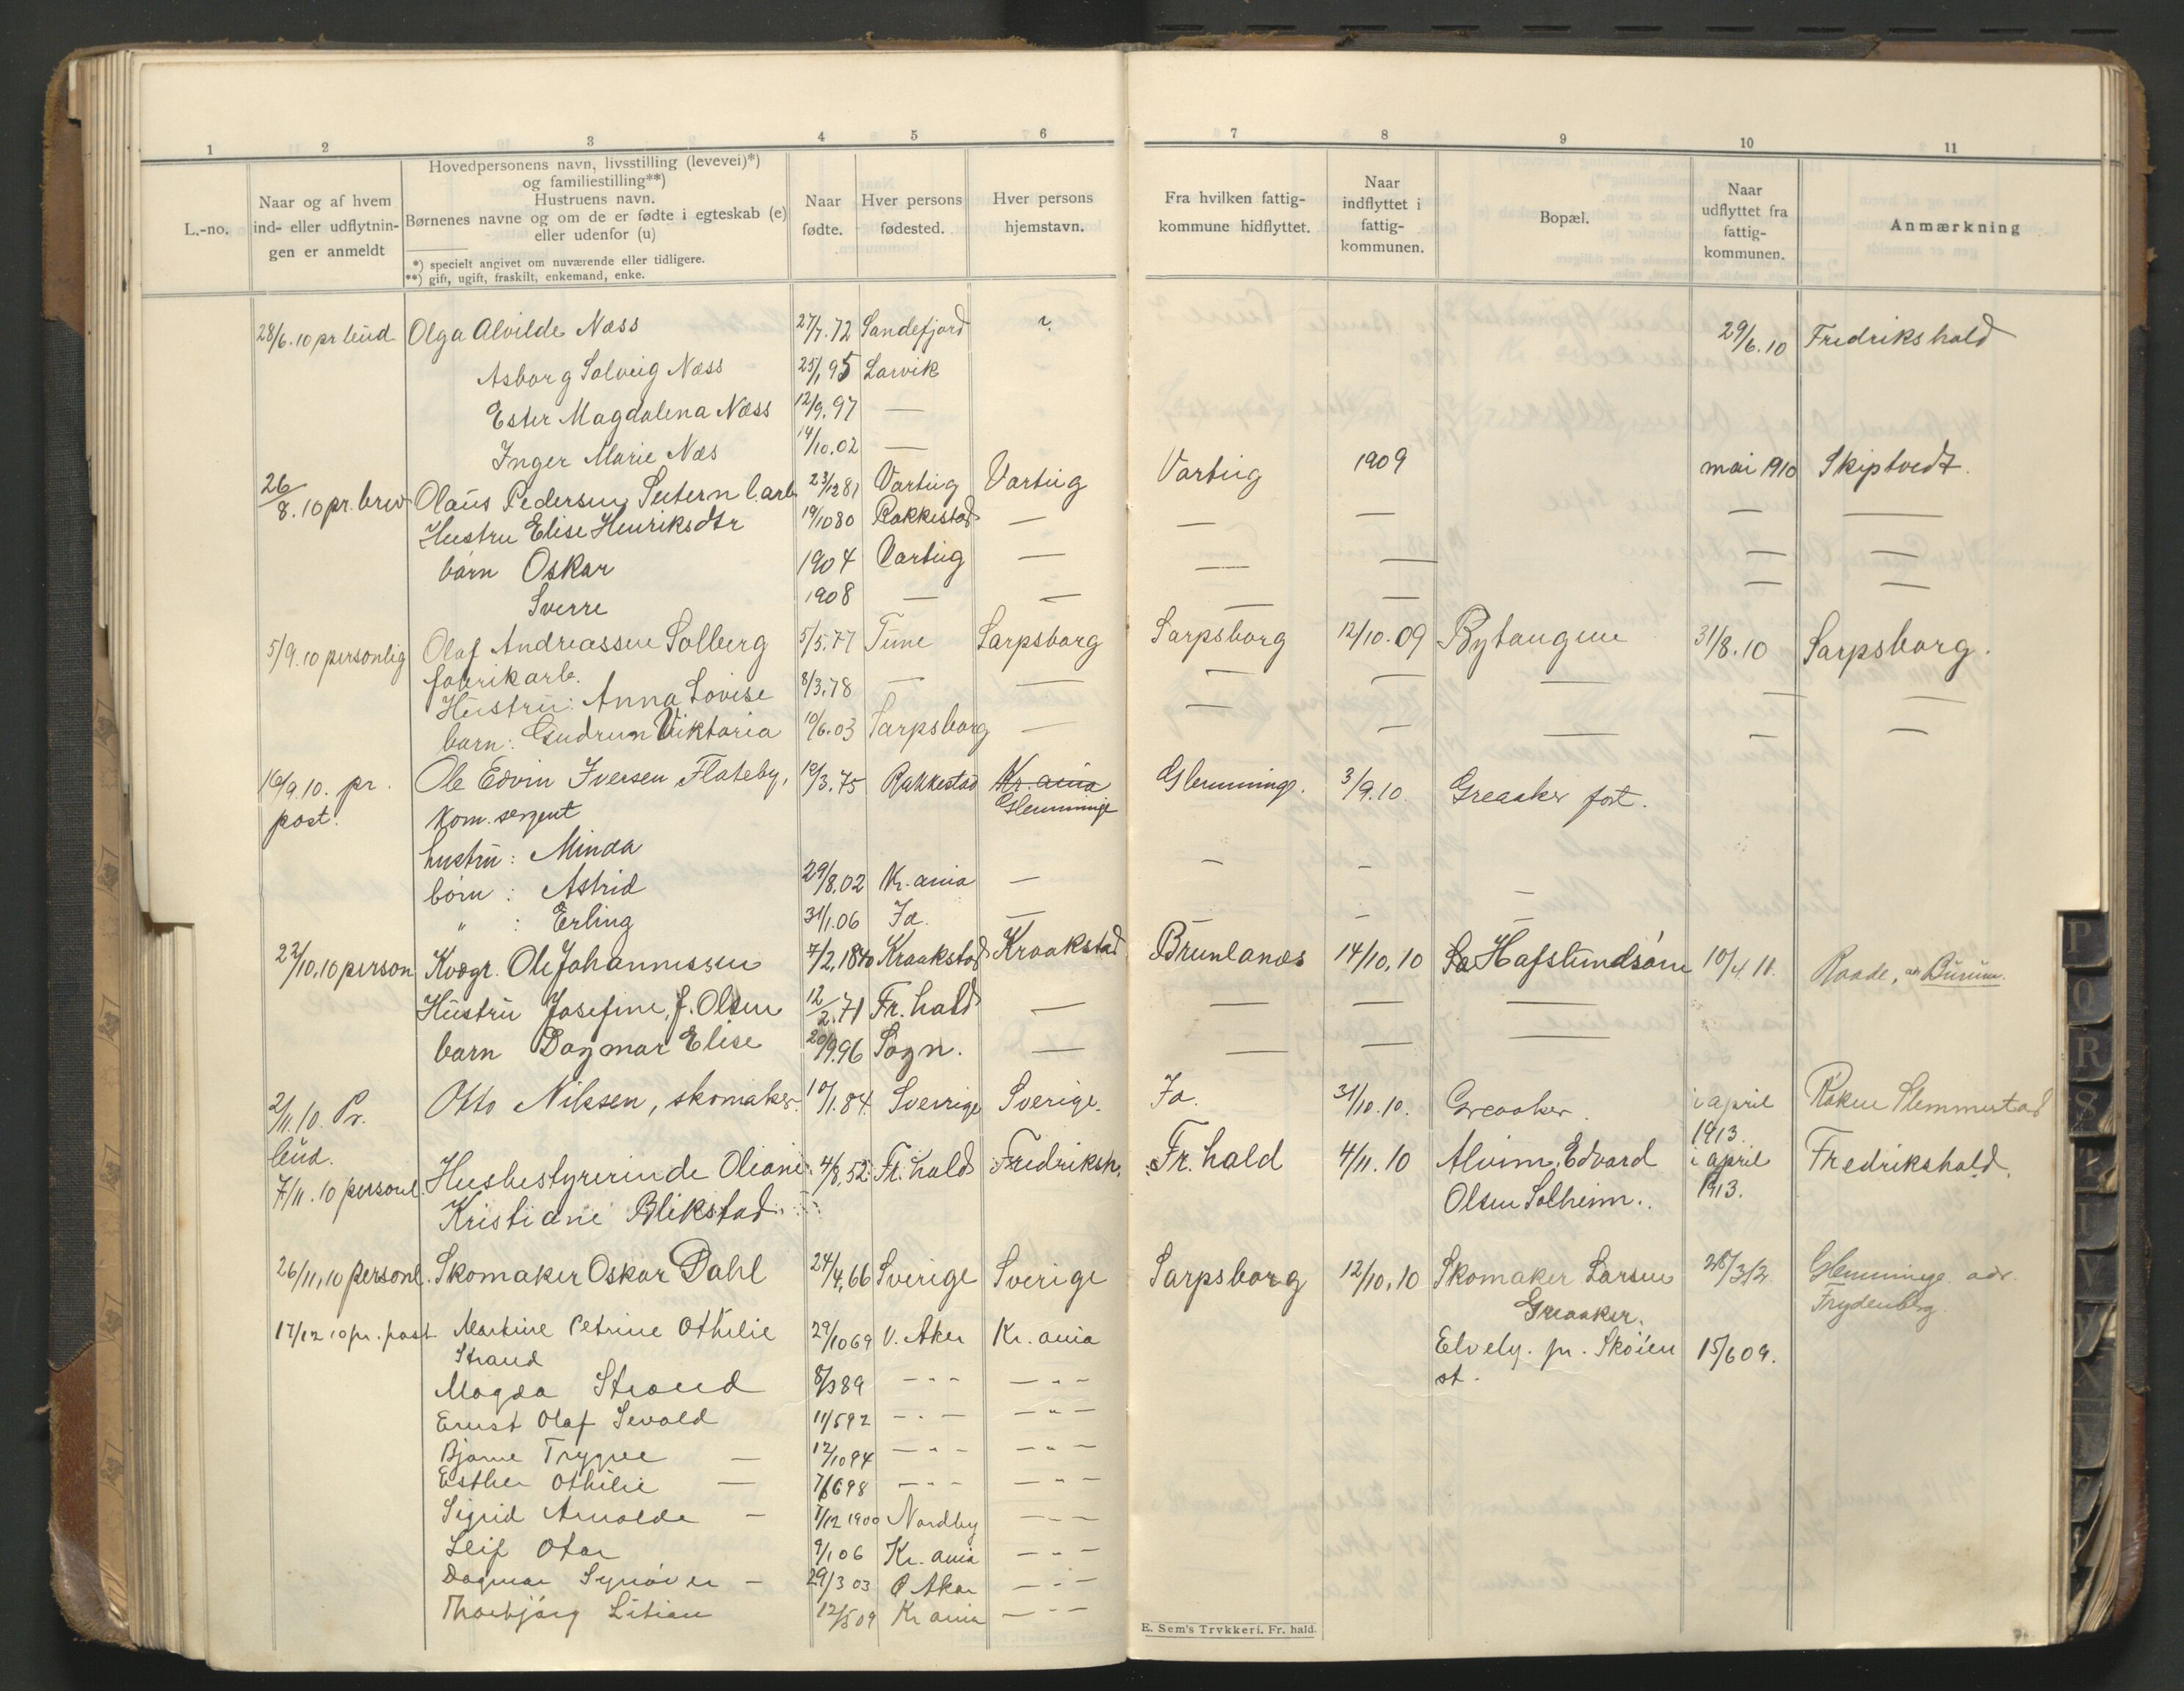 1 2 3 4 5 6 7 8 9 10 11
L.-no.
Naar og af hvem
ind- eller udflytnin-
gen er anmeldt
Hovedpersonens navn, livsstilling (levevei)*)
og familiestilling**)
Hustruens navn.
Børnenes navne og om de er fødte i egteskab (e)
eller udenfor (u)
*) specielt angivet om nuværende eller tidligere.
**) gift, ugift, fraskilt, enkemand, enke.
Naar
fødte.
Hver persons
fødested.
Hver persons
hjemstavn.
Fra hvilken fattig-
kommune hidflyttet.
Naar
indflyttet i
fattig-
kommunen.
Bopæl.
Naar
udflyttet fra
fattig-
kommunen.
Anmærkning
28/6.10 pr bud Olga Alvilde Næss 27/7.72 Sandefjord ? 29/6.10 Fredrikshald
Asborg Solveig Næss 25/1 95 Larvik
Ester Magdalena Næss 12/9.97 —
Inger Marie Næs 14/10.02 —
26/8.10 pr. brev Olaus Pedersen 23/12 81 Varteig Varteig Varteig 1909 mai 1910 Skiptvedt.
Hustru Elise Henriksdtr 19/10 80 Rakkestad — — — — —
børn Oskar 1904 Varteig — — — — —
Sverre 1908 — — — — — —
5/9.10 personlig Olaf Andreassen Solberg 5/5.77 Tune Sarpsborg Sarpsborg 12/10.09 Bytangen 31/8.10 Sarpsborg.
fabrikarb.
Hustru: Anna Lovise 8/3.78 — — — — — — —
barn: Gudrun Viktoria 10/6.03 Sarpsborg — — — — — —
16/9.10. pr. Ole Edvin Iversen Flateby, 10/3.75 Rakkestad Kr.ania Glemminge. 3/9.10. Greaaker fort.
post. Kom. sergent Glemminge
hustru: Minda
børn: Astrid 29/8.02 Kr.ania — — — —
" : Erling 31/1.06 Ja. — — — —
22/10.10 person Kvægr. Ole Johannessen 7/2.1840 Kraakstad Kraakstad Brunlanæs 14/10.10 Hafslundsøen 10/4 11. Raade,
Hustru Josefine, f. Olsen 12/2.71 Fr.hald — — — —
barn Dagmar Elise 20/9.96 Sogn. — — — —
2/11.10. Pr. Otto Nilsen, skomaker. 10/1.84 Sverrige Sverige. Ja. 31/10.10. Greaaker. i april Røken Slemmestad
bud. 1913.
7/11.10 personl. Husbestyrerinde Oliane 4/8.52. Fr.hald Fredriksh. Fr.hald 4/11.10 Alvim, Edvard i april Fredrikshald.
Kristiane Blikstad Olsen Solheim. 1913.
26/11.10 personl. Skomaker Oskar Dahl 24/4.66 Sverige Sverige Sarpsborg 12/10.10 Skomaker Larsen 28/3 12 Glemminge adr.
Greaaker. Frydenberg.
17/12 10 pr. post Martine Petrine Othilie 29/10 69 V. Aker Kr.ania Elvely. pr. Skøien 15/6 09.
Strand st.
Magda Strand 8/3 89 — " — — " —
Ernst Olaf Sevald 11/5 92 — " — — " —
Bjarne Trygve — 12/10 94 — " — — " —
Esther Othilie — 7/6 98 — " — — " —
Sigrid Arnolde — 7/12 1900 Nordby — " —
Leif Otar 9/1 06 Kr.ania — " —
Dagmar Synøver — 29/3 03 Ø Aker — " —
Thorbjørg Litian 12/5 09 Kr ania — " —
E. Sem's Trykkeri. Fr. hald.
P
Q
R
S
T
U
V
X
Y